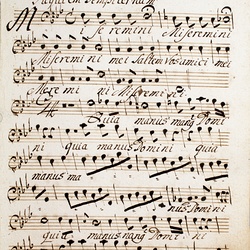 Requiem Sempiternam
Mi se remini Miseremini
Miseremini mei Saltem vos amici mei
Mi se remi ni Miseremini
Quia manus Domi
ni quia manus Domini quia
manus ma
nus Domini
quia manus Domi ni